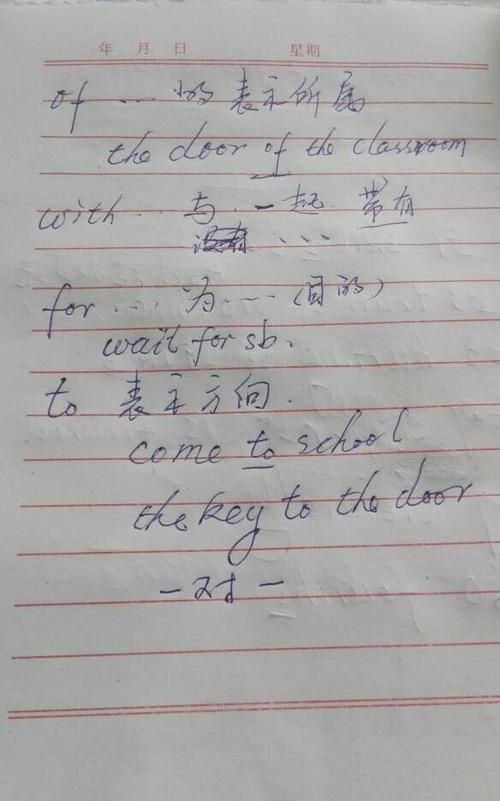 年 月 日 星期
of .... 的 表示所属
the door of the classroom
with ... 与...一起. 带有
...
for .... 为.... (目的)
wait for sb.
to 表示方向.
come to school
the key to the door
一对一